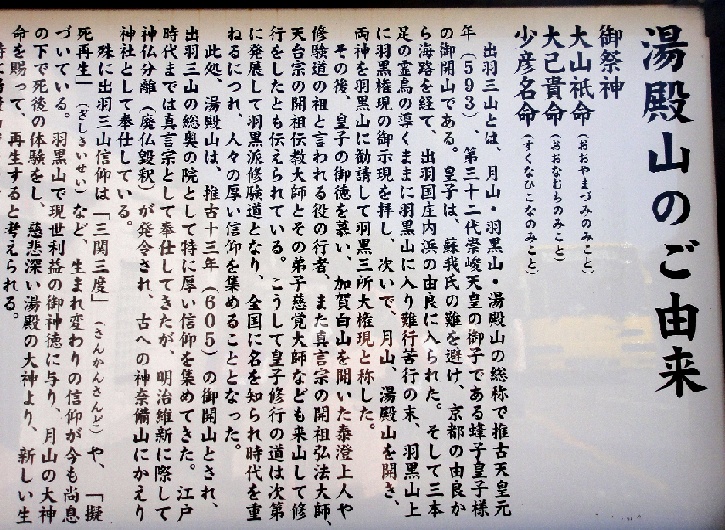 湯殿山のご由来
御祭神
大山祇命（おおやまづみのみこと）
大己貴命（おおなむちのみこと）
少彦名命（すくなひこなのみこと）
出羽三山とは、月山・羽黒山・湯殿山の総称で推古天皇元
年（593）、第三十二代崇峻天皇の御子である蜂子皇子様
の御開山である。皇子は、蘇我氏の難を避け、京都の由良か
ら海路を経て、出羽国庄内浜の由良に入られた。そして三本
足の霊烏の導くままに羽黒山に入り難行苦行の末、羽黒山上
に羽黒権現の御示現を拝し、次いで、月山、湯殿山を開き、
両神を羽黒山に勧請して羽黒三所大権現と称した。
その後、皇子の御徳を慕い、加賀白山を開いた泰澄上人や
修験道の祖と言われる役の行者、また真言宗の開祖弘法大師、
天台宗の開祖伝教大師とその弟子慈覚大師なども来山して修
行をしたとも伝えられている。こうして皇子修行の道は次第
に発展して羽黒派修験道となり、全国に名を知られ時代を重
ねるにつれ、人々の厚い信仰を集めることとなった。
此処、湯殿山は、推古十三年（605）の御開山とされ、
出羽三山の総奥の院として特に厚い信仰を集めてきた。江戸
時代までは真言宗として奉仕してきたが、明治維新に際して
神仏分離（廃仏毀釈）が発令され、古への神奈備山にかえり
神社として奉仕している。
殊に出羽三山信仰は「三関三度」（さんかんさんど）や、「擬
死再生」（ぎしさいせい）など、生まれ変わりの信仰が今も尚息
づいている。羽黒山で現世利益の御神徳に与り、月山の大神
の下で死後の体験をし、慈悲深い湯殿の大神より、新しい生
命を賜って、再生すると考えられる。